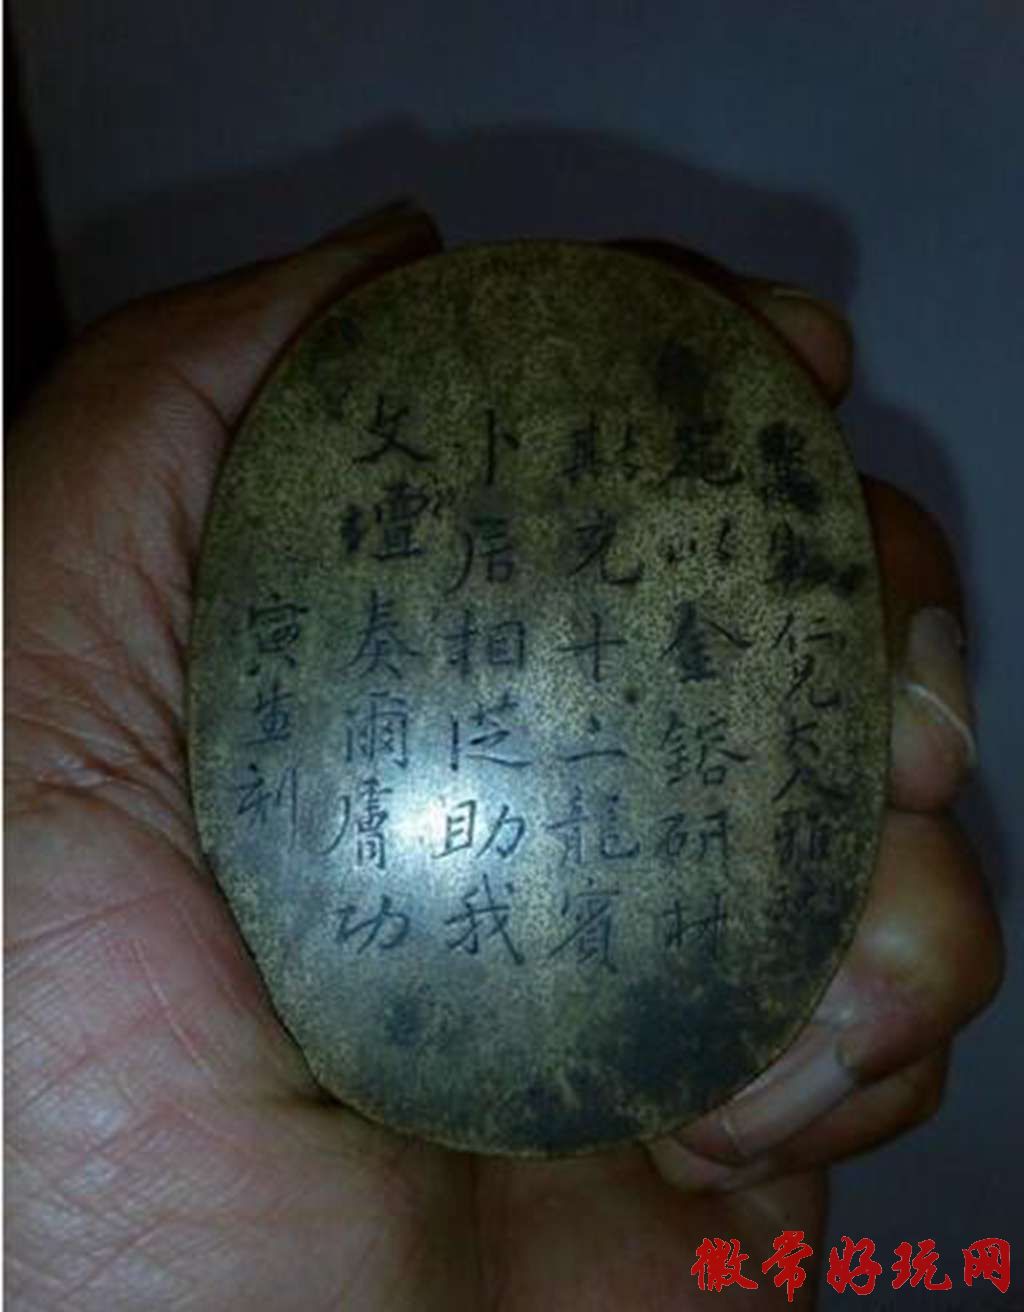 仁兄大人雅
以金鎔研材
斯充十二龍賓
卜居相從助我
文壇奏爾膚功
寅生刻
徽常好玩网